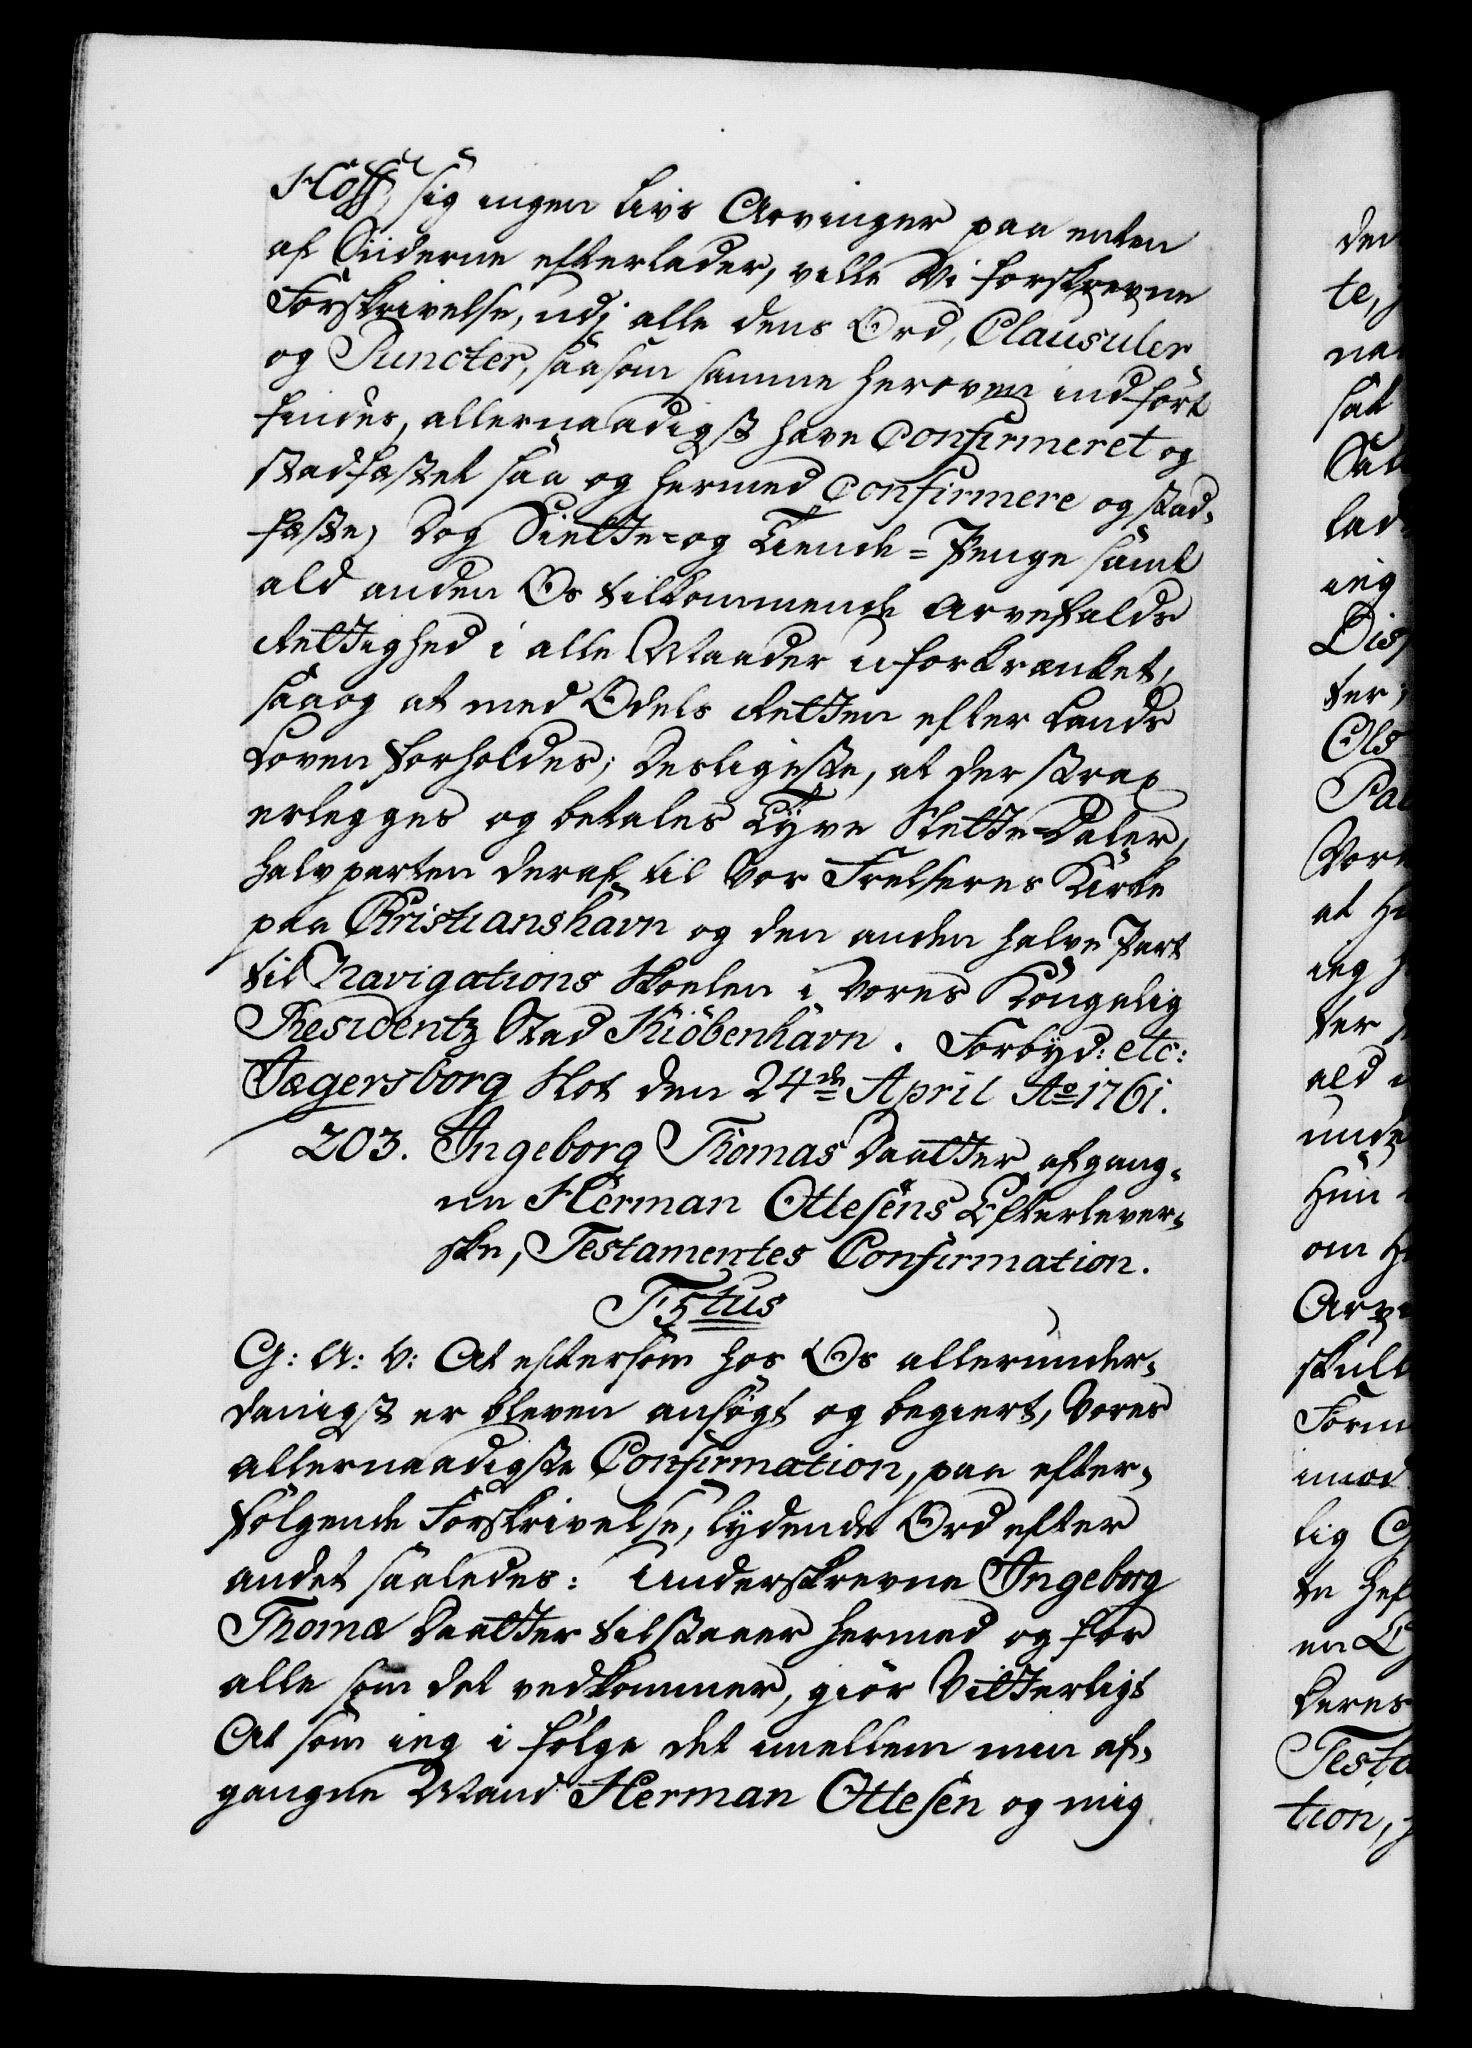 Hoff, sig ingen Livs Arvinger paa enten
af Siiderne efterlader, ville Vi forskrevne
Forskrivelse, udj alle dens Ord, Clausuler
og Puncter, saasom samme heroven indført
findes, allernaadigst have Confirmeret og
stadfæstet saa og hermed Confirmere og stad-
fæste; Dog Siette=og Tiende=Penge samt
ald anden Os tilkommende Arvefalds
Rettighed i alle Maader uforkrænket,
saa og at med Odels Retten efter Lands
Loven forholdes; Desligeste, at der strax
erlegges og betales Tyve Slette Daler,
halvparten deraf til Vor Frelseres Kirke
paa Christianshavn og den anden halve Part
til Navigations Skoelen i Vores Kongelig
Residentz Stad Kiöbenhavn. Forbyd: etc:
Jægersborg Slot den 24de April Ao 1761.
203. Ingeborg Thomas Daatter afgang-
ne Herman Ottesens Efterlever-
ske, Testamentes Confirmation.
F5tus
G: A: V: At eftersom hos Os allerunder-
danigst er bleven ansøgt og begiert, Vores
allernaadigste Confirmation, paa efter-
følgende Forskrivelse, lydende Ord efter
andet saaledes: Underskrevne Ingeborg
Thomæ Daatter tilstaaer hermed og for
alle som det vedkommer, giör Vitterligt
At som ieg i følge det imellem min af-
gangne Mand Herman Ottesen og mig